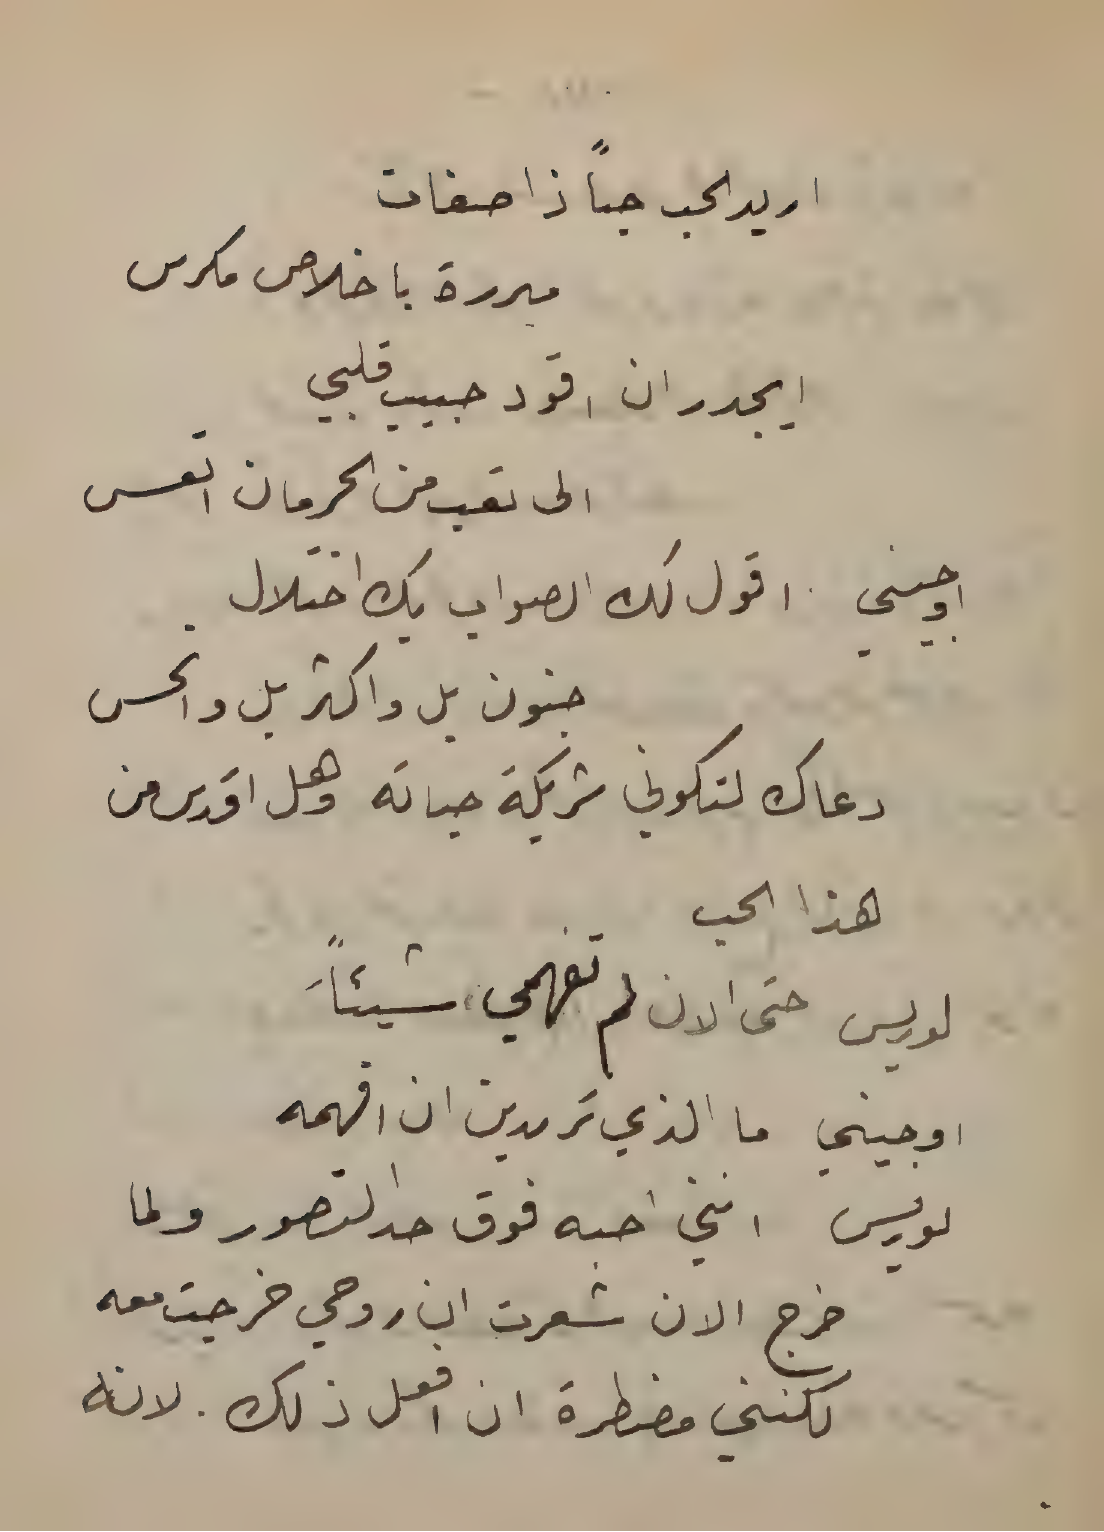 اريد الحب حباً ذا صفات
مبررة باخلاص مكرس
ايجدر ان اقود حبيب قلبي
الى تعب من الحرمان اتعس
اوجيني اقول لك الصواب بك اختلال
جنون بل واكثر بل وانحس
دعاك لتكوني شريكة حياته وهل اقدس من
هذا الحب
لوريس حتى الان لم تفهمي شيئاً
اوجيني ما الذي تريدين ان افهمه
لوريس انني احبه فوق حد التصور ولما
خرج الان شعرت ان روحي خرجت معه
لكنني مضطرة ان افعل ذلك. لانه